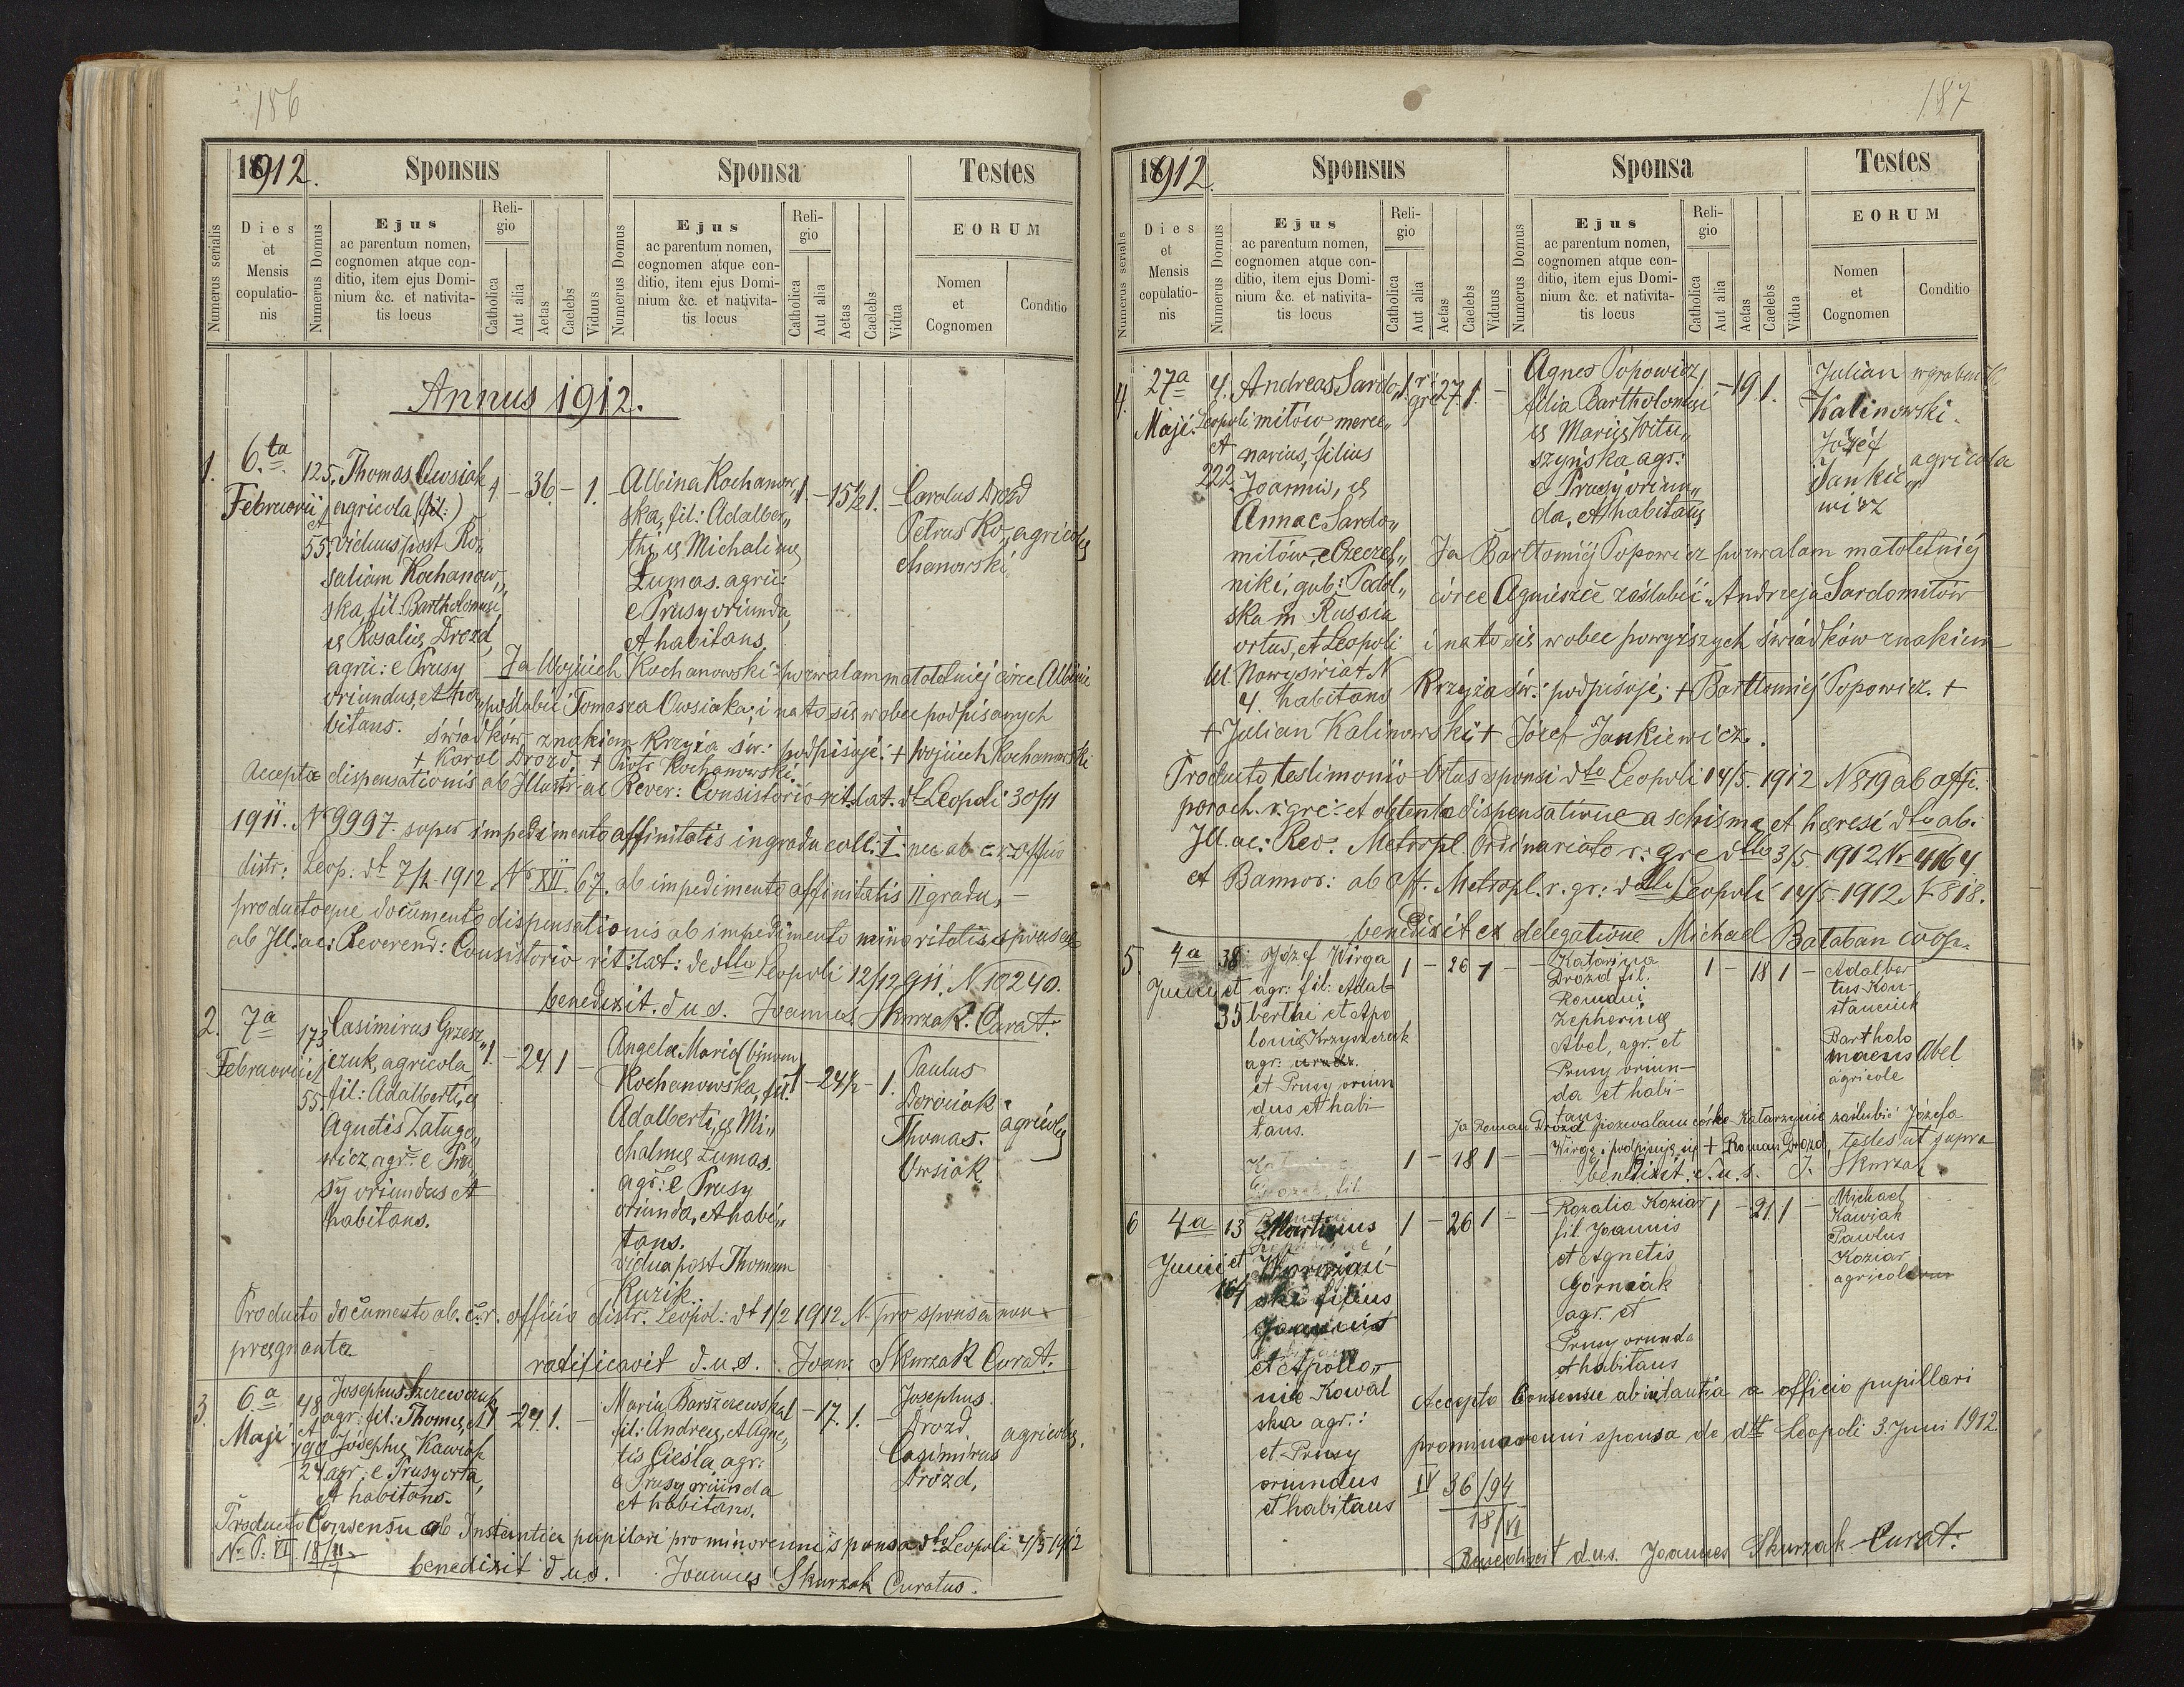 186
1912.
Sponsus
Sponsa
Testes
Numerus serialis
Dies
et
Mensis
copulatio-
nis
Numerus Domus
Ejus
ac parentum nomen,
cognomen atque con-
ditio, item ejus Domi-
nium &c. et nativita-
tis locus
Reli-
gio
Catholica
Aut alia
Aetas
Caelebs
Viduus
Numerus Domus
Ejus
ac parentum nomen,
cognomen atque con-
ditio, item ejus Domi-
nium &c. et nativita-
tis locus
Reli-
gio
Catholica
Aut alia
Aetas
Caelebs
Vidua
EORUM
Nomen
et
Cognomen
Conditio
Annus 1912.
1.
6.ta
Februarii
125.
et
55.
Thomas Owsiak
agricola (fil:)
viduus post Ro„
saliam Kochanow„
ska, fil. Bartholomaei
et Rosaliæ Drozd,
agric: e Prusy
oriundus, et ha„
bitans.
1 - 36 - 1.
Albina Kochanow„
ska, fil: Adalber„
thi, et Michalinæ
Lumas. agric:
e Prusy oriunda,
et habitans.
1. - 15½ 1.
Carolus Drozd
Petrus Ko„
chanowski
agricolæ
Ja Wojciech Kochanowski pozwalam małoletniej córce Albinie
poślubić Tomasza Owsiaka; i na to się wobec podpisanych
świadków znakiem Krzyża św: podpisuję: + Wojciech Kochanowski
+ Karol Drozd. + Piotr Kochanowski.
Accepta dispensationis ab Illustr: ac Rever: Consistorio rit. lat. dt Leopoli 30/11
1911. N 9997. super impedimento affinitatis in gradu coll: I. nec ab c. r. officio
distr: Leop: dt 7/2 1912 Nr XII. 67. ab impedimento affinitatis II gradu, -
productoque documento dispensationis ab impedimento minoritatis sponsae
ab Ill: ac: Reverend: Consistorio rit: lat: de dtto Leopoli 12/12 911. N 10240.
benedixit. d. u. s. Joannes Skurzak. Curat:
2.
7a
Februarii
173
et
55.
Casimirus Grzesz„
czuk, agricola,
fil: Adalberti, et
Agnetis Załugo„
wicz, agr: e Pru„
sy oriundus et
habitans.
1. - 24 1 -
Angela Maria (binom
Kochanowska, fil:
Adalberti, et Mi„
chalinæ Lumas.
agr: e Prusy
oriunda, et habi„
tans.
vidua post Thomam
Kuzik.
1 - 24½ - 1.
Paulus
Dorociak
Thomas.
Owsiak.
agricolæ
Producto documento ab. c. r. officio distr. Leopol: dt 1/2 1912 N. pro sponsa non
pregnanta
ratificavit d. u. s. Joan: Skurzak Curat.
3.
6.a
Maji
48
et
190
Josephus Szczewczuk
agr: fil: Thomæ, et
Josephæ Kawiak
agr: e Prusy orta,
et habitans.
1 - 24. 1. -
Maria Barszczewska
fil: Andreæ, et Agne„
tis Cieśla agr:
e Prusy oriunda
et habitans.
1 - 17. 1. -
Josephus
Drozd.
Casimirus
Drozd,
agricolæ.
Producto Consensu ab Instantia pupilari pro minorenni sponsa dto Leopoli 4/5 1912
benedixit d. u. s. Joannes Skurzak Curatus.
187
1912.
Sponsus
Sponsa
Testes
Numerus serialis
Dies
et
Mensis
copulatio-
nis
Numerus Domus
Ejus
ac parentum nomen,
cognomen atque con-
ditio, item ejus Domi-
nium &c. et nativita-
tis locus
Reli-
gio
Catholica
Aut alia
Aetas
Caelebs
Viduus
Numerus Domus
Ejus
ac parentum nomen,
cognomen atque con-
ditio, item ejus Domi-
nium &c. et nativita-
tis locus
Reli-
gio
Catholica
Aut alia
Aetas
Caelebs
Vidua
EORUM
Nomen
et
Cognomen
Conditio
4.
27a
Maji.
4.
Leopoli
et
222.
Andreas Sardo„
mitow merce„
narius, filius
Joannis, et
Annae Sardo„
mitów, e Czeczel„
niki, gub: Podol„
ska in Russia
ortus, et Leopoli
ul. Nowy świat N
4. habitans
1. r. gr. 27. 1. -
Agnes Popowicz
filia Bartholomæi
et Mariæ Witu„
szyńska agr:
e Prusy oriun„
da, et habitans
1 - 19 1.
Julian
Kalinowski.
Józef
Jankie„
wicz
agricola
Ja Bartłomiej Popowicz pozwalam małoletniej
córce Agnieszce zaślubić Andrzeja Sardomitów
i na to się wobec powyższych świadków znakiem
Krzyża św: podpisuję; + Bartłomiej Popowicz. +
+ Julian Kalinowski + Józef Jankiewicz.
Producto testimonio ortus sponsi dto Leopoli 14/5. 1912 N 819 ab offi.
paroch. r. gr: et obtenta dispensatione a schisma et hæresi dto ab.
Ill. ac: Rev: Metropl. Ordinariato r: gr: dtto 3/5 1912 Nr 4164
et Bannor: ab off. Metropl. r. gr: dtto Leopoli 14/5 1912 N 818.
benedixit ex delegatione Michael Bałaban coop.
5.
4a
Junii
38
et
35
Józef Wirga
agr: fil: Adal-
berthi et Apo
loniæ Krzyszczuk
agr:
et Prusy oriun
dus et habi-
tans.
1 - 26 1 -
Katarina
Drozd fil.
Romani
Zepherinæ
Abel, agr. et
Prusy oriun-
da et habi-
tans.
1 - 18 1 -
Adalber
tus Kon-
stanciuk
Bartholo
maeus Abel
agricole
Ja Roman Drozd pozwalam córkę Katarzynie zaślubić Józefa
Wirgę i podpisuję się + Roman Drozd, testes ut supra
benedixit. d. u. s. J. Skurzak
1 - 18 1 -
6
4a
Junii
13
et
164
Martinus
filius
Joannis
et Apollo-
nia Kowal
ska agr:
et Prusy
oriundus
et habitans
1 - 26 1 -
Rozalia Koziar
fil. Joannis
et Agnetis
Górniak
agr. et
Prusy oriunda
et habitans
1 - 21 1 -
Michael
Kawiak
Pawlus
Koziar
Accepto Consensu ab instantia a officio pupillari
pro minorenni sponsa de dtt Leopoli 3. Juni 1912.
IV 36/94
18/VI
Benedixit d. u. s. Joannes Skurzak Curat: